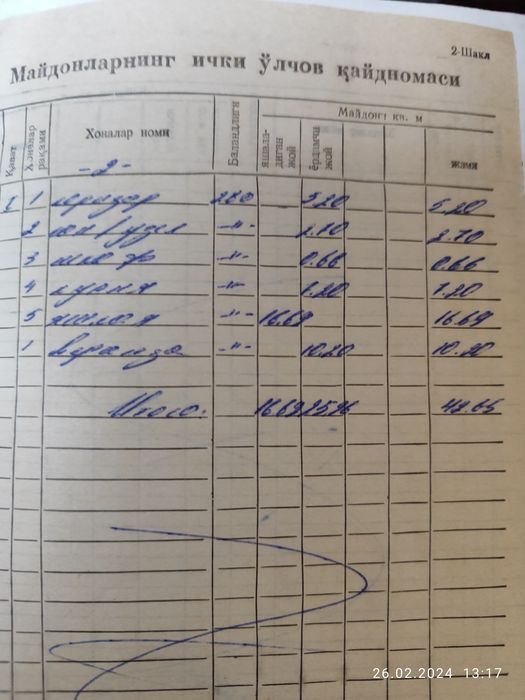 2-Шакл
Майдонларнинг ички ўлчов қайдномаси
Қават
Хоналар рақами
Хоналар номи
Баландлиги
Майдонт кв. м
яшала-диган жой
ёрдамчи жой
жами
-2-
I 1 коридор 280 5.20 5.20
2 сан/узел -"- 2.70 2.70
3 шкаф -"- 0.66 0.66
4 кухня -"- 7.20 7.20
5 жилая -"- 16.69 16.69
1 веранда -"- 10.20 10.20
Итого: 16.69 25.96 42.65
26.02.2024 13:17